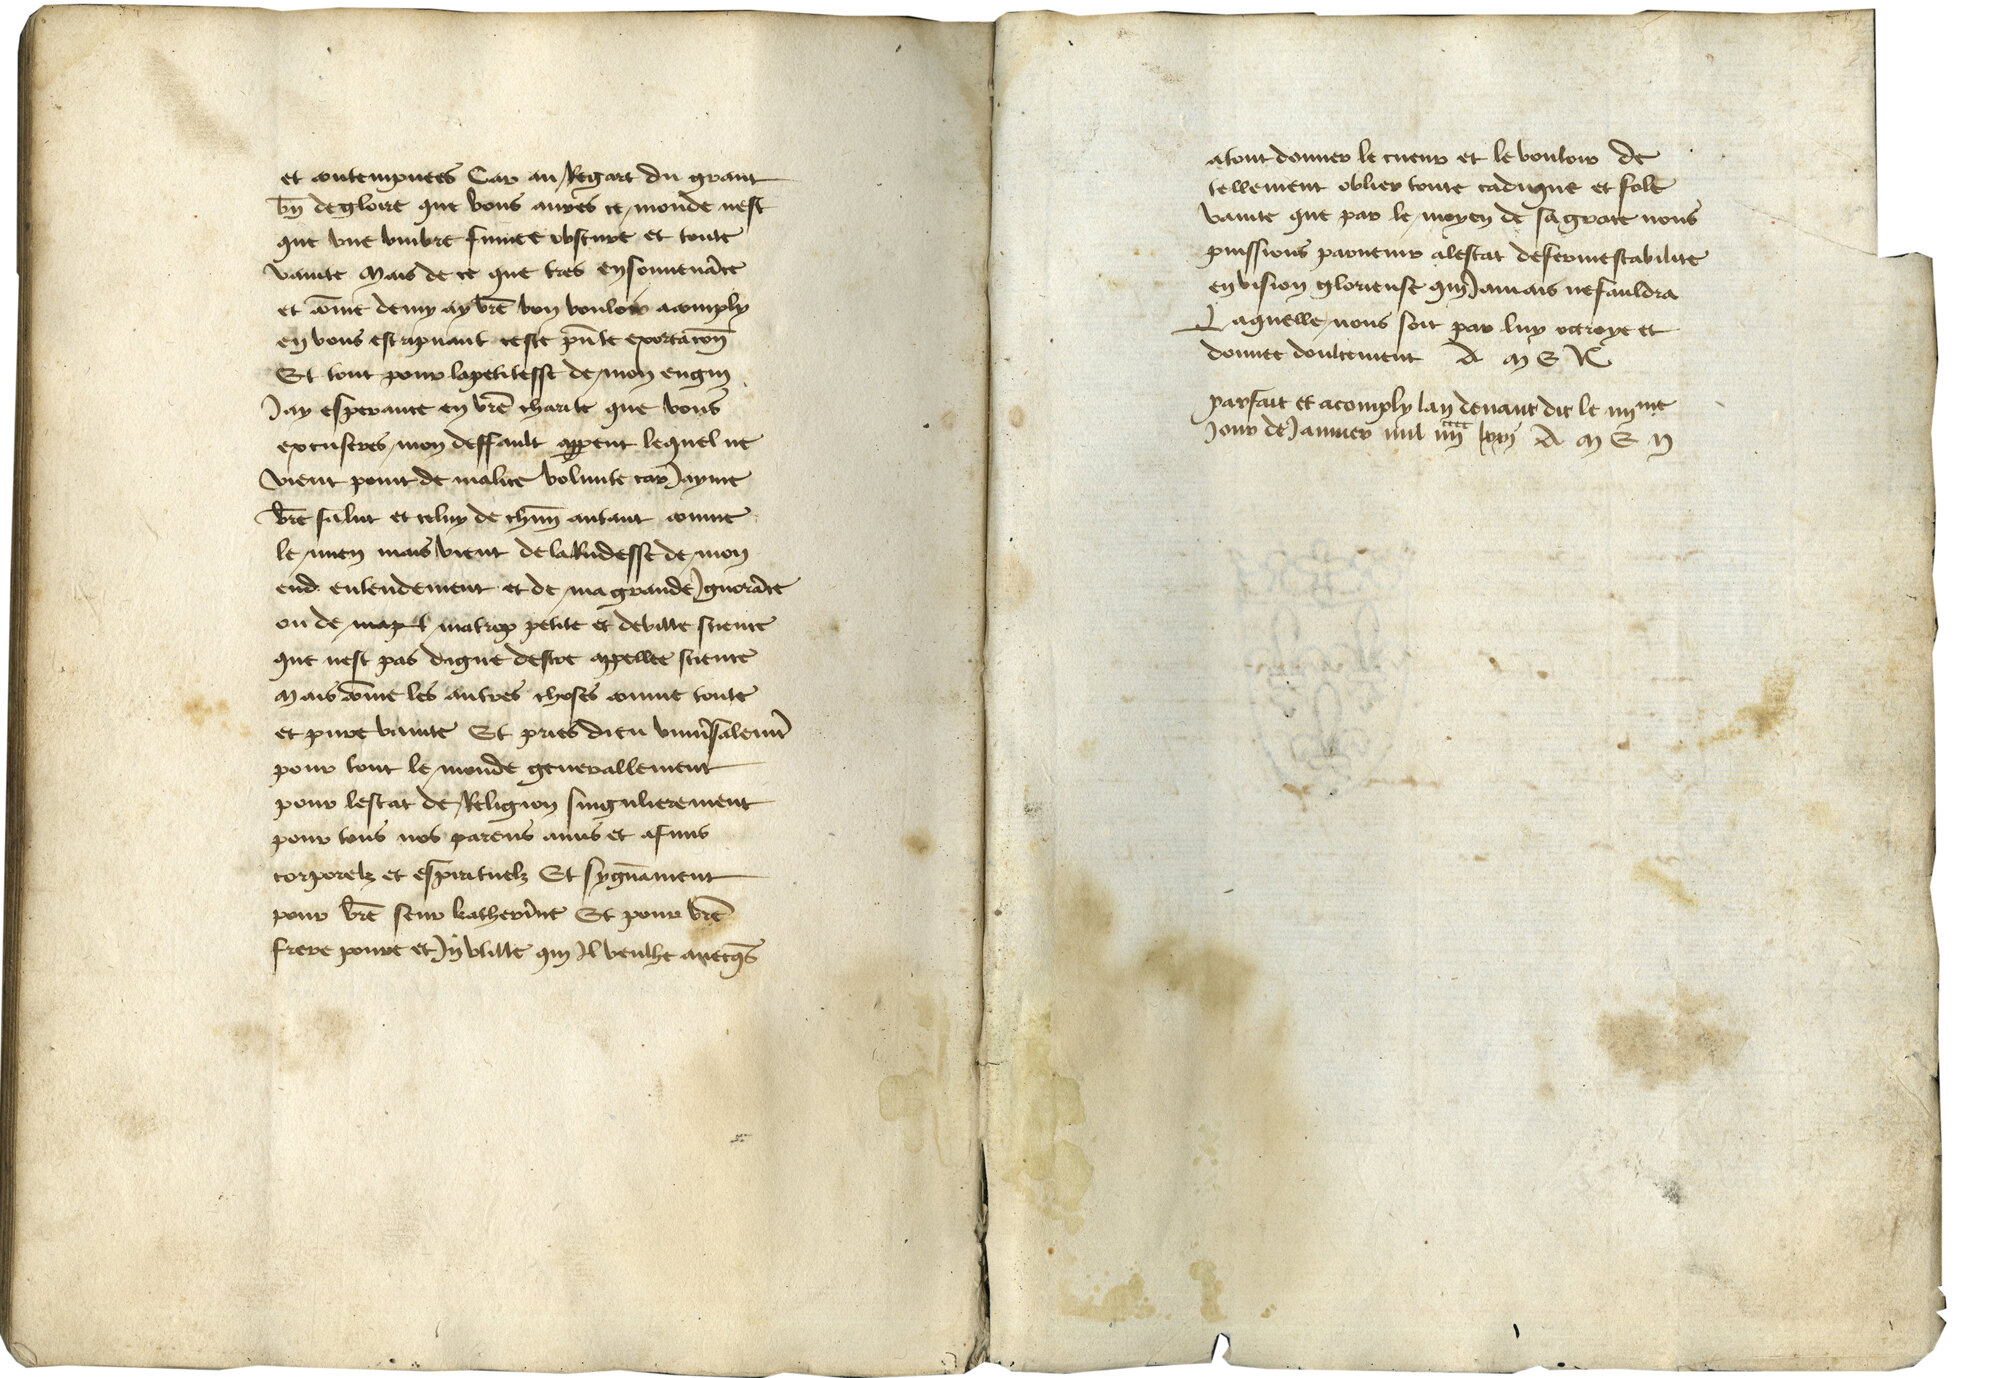 et contempnees Car au Regart du grant
bn̄ de gloire que vous aures ce monde nest
que vne vmbre fumee obscure et toute
vanite Mais de ce que tres en souuenāce
et cōme demy ay vr̄e bon vouloir acomply
en vous escripuant ceste pn̄te exortacōn
Et tout pour la petitesse de mon engin
Jay esperance en vr̄e charite que vous
excuseres mon deffault appent lequel ne
vient point de malice volunte car Jayme
vr̄e salut et celuy de chūn autant comme
le mien mais vient de la Rudesse de mon
end entendement et de ma grande Jgnorāce
ou de ma trop petite et debille science
que nest pas digne destre appellee science
Mais cōme les autres choses comme toute
et pure vanite Et pries dieu
pour tout le monde generallement
pour lestat de Religion singulierement
pour tous nos parens amis et afinis
corporelz et espirituelz Et sygnāment
pour vr̄e seur katherine Et pour vr̄e
frere poure et Jnvtille qui Jl veulhe auecqs
a tout donner le cueur et le vouloir de
tellement oblier toute caduque et fole
vanite que par le moyen de sa grace nous
puissions paruenir a lestat de ferme stabilite
en vision glorieuse qui Jamais ne fauldra
Laquelle nous soit par luy octroye et
donnee doulcement A M E N
parfait et acomply lan deuant dit le iiijme
Jour de Januier mil iiijcccc A M E N